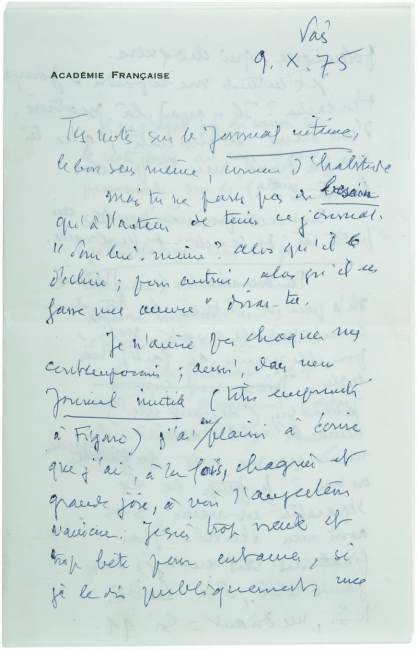 9. X. 75
ACADÉMIE FRANÇAISE
Tes notes sur le Journal intime,
le bon sens même, comme d'habitude
mais tu ne parles pas du besoin
qu'a l'auteur de tenir ce journal.
"Pour lui-même? alors qu'il le
déclare; pour autrui, alors qu'il en
fasse une œuvre" diras-tu.
Je n'aime pas choquer mes
contemporains; aussi, dans mon
Journal inutile (titre emprunté
à Figaro) j'ai plaisir à écrire
que j'ai, à la fois, chagrin et
grande joie, à voir
Je suis trop vieux et
trop bête pour entamer, si
je le dis publiquement, une